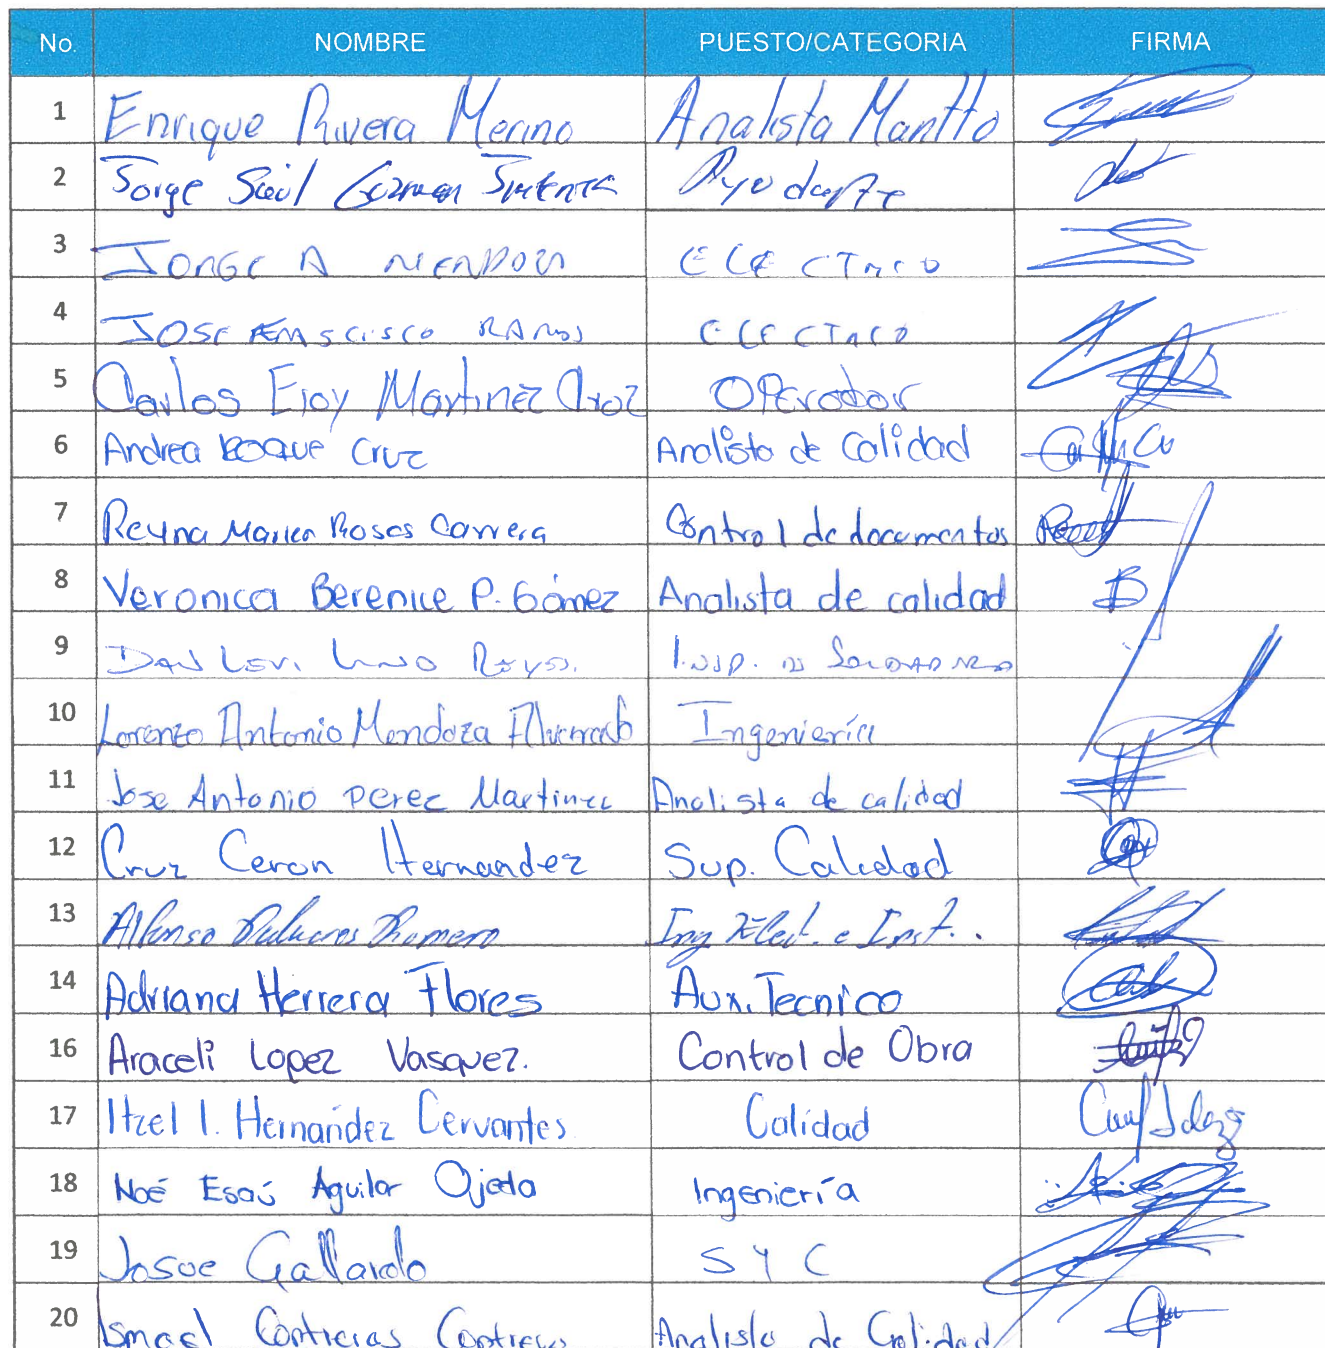 No. NOMBRE PUESTO/CATEGORIA FIRMA
1 Enrique Rivera Merino Analista Mantto
2 Jorge Saúl Guzman Ayudante
3 JORGE A MENDOZA ELECTRICO
4 JOSE FRANSCISCO RAMOS ELECTRICO
5 Carlos Eloy Martinez Cruz OPerador
6 Andrea ROQUE Cruz Analista de Calidad
7 Reyna Maria Rosas Carrera Control de documentos
8 Veronica Berenice P. Gómez Analista de calidad
9 DAN LEVI LINO REYES. INSP. DE SOLDADURA
10 Lorenzo Antonio Mendoza Alvarado Ingeniería
11 Jose Antonio Perez Martinez Analista de calidad
12 Cruz Ceron Hernandez Sup. Calidad
13 Alfonso Palacios Romero Ing Elect. e Inst.
14 Adriana Herrera Flores Aux. Tecnico
16 Araceli Lopez Vasquez. Control de Obra
17 Itzel I. Hernández Cervantes Calidad
18 Noé Esaú Aguilar Ojeda Ingeniería
19 Josue Gallardo S Y C
20 Ismael Contreras Contreras Analista de Calidad